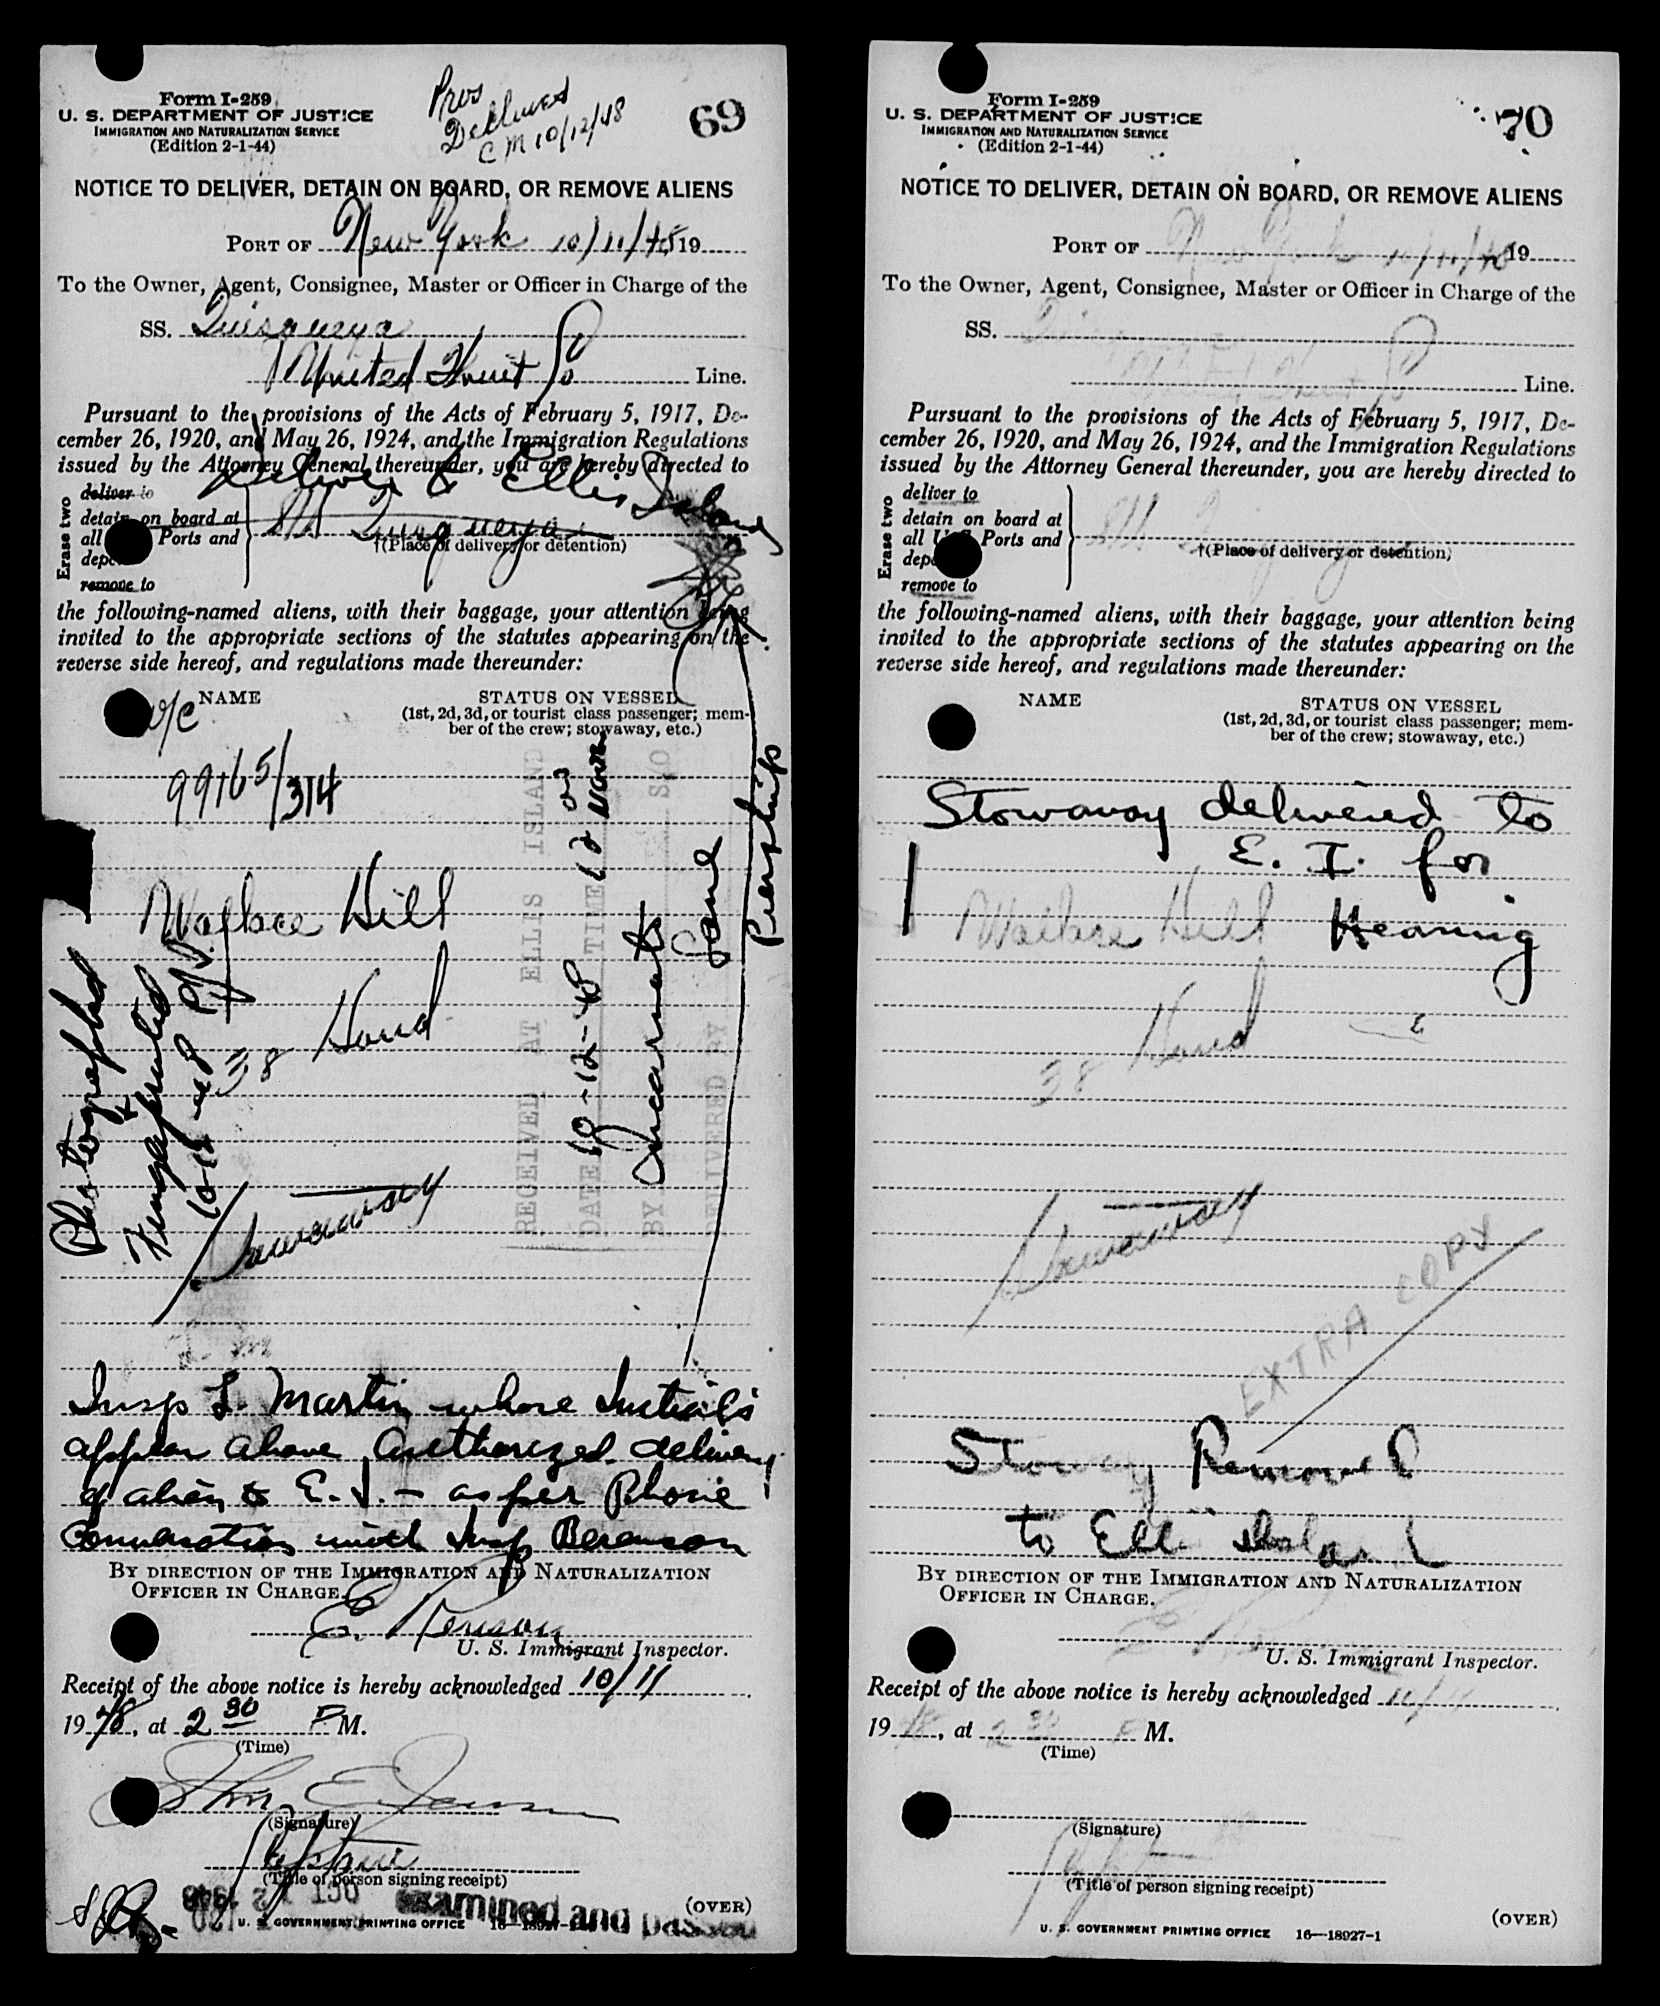 Form I-259
U. S. DEPARTMENT OF JUSTICE
IMMIGRATION AND NATURALIZATION SERVICE
(Edition 2-1-44)
CM 10/12/48
69
NOTICE TO DELIVER, DETAIN ON BOARD, OR REMOVE ALIENS
PORT OF New York 10/11/48 19
To the Owner, Agent, Consignee, Master or Officer in Charge of the
SS. Quisqueya
United Fruit Co Line.
Pursuant to the provisions of the Acts of February 5, 1917, De-
cember 26, 1920, and May 26, 1924, and the Immigration Regulations
issued by the Attorney General thereunder, you are hereby directed to
Deliver to Ellis Island
Erase two
deliver to
detain on board at
all Ports and
remove to
SS Quisqueya
†(Place of delivery or detention)
the following-named aliens, with their baggage, your attention being
invited to the appropriate sections of the statutes appearing on the
reverse side hereof, and regulations made thereunder:
NAME
STATUS ON VESSEL
(1st, 2d, 3d, or tourist class passenger; mem-
ber of the crew; stowaway, etc.)
99165/314
Wallace Hill
38 Hond
Stowaway
Photographed
Fingerprinted
10-12-48
RECEIVED AT ELLIS ISLAND
DATE 10-12-48 TIME 12 noon
BY
DELIVERED BY
Insp L. Martin whose Initials
appear above Authorized delivery
of alien to E.I. - as per Phone
Conversation with Insp Berenson
BY DIRECTION OF THE IMMIGRATION AND NATURALIZATION
OFFICER IN CHARGE.
E. Berenson
U. S. Immigrant Inspector.
Receipt of the above notice is hereby acknowledged 10/11
1948, at 2 30 P.M.
(Time)
(Signature)
Captain
(Title of person signing receipt)
Examined and passed
(OVER)
U. S. GOVERNMENT PRINTING OFFICE 16—18927-1
Form I-259
U. S. DEPARTMENT OF JUSTICE
IMMIGRATION AND NATURALIZATION SERVICE
(Edition 2-1-44)
70
NOTICE TO DELIVER, DETAIN ON BOARD, OR REMOVE ALIENS
PORT OF New York 10/11/48 19
To the Owner, Agent, Consignee, Master or Officer in Charge of the
SS.
Line.
Pursuant to the provisions of the Acts of February 5, 1917, De-
cember 26, 1920, and May 26, 1924, and the Immigration Regulations
issued by the Attorney General thereunder, you are hereby directed to
Erase two
deliver to
detain on board at
all Ports and
remove to
†(Place of delivery or detention)
the following-named aliens, with their baggage, your attention being
invited to the appropriate sections of the statutes appearing on the
reverse side hereof, and regulations made thereunder:
NAME
STATUS ON VESSEL
(1st, 2d, 3d, or tourist class passenger; mem-
ber of the crew; stowaway, etc.)
Stowaway delivered to
E. I. for
Wallace Hill Hearing
38 Hond
Stowaway
EXTRA COPY
Stowaway Removed
to Ellis Island
BY DIRECTION OF THE IMMIGRATION AND NATURALIZATION
OFFICER IN CHARGE.
U. S. Immigrant Inspector.
Receipt of the above notice is hereby acknowledged 10/11
1948, at 2 30 P M.
(Time)
(Signature)
(Title of person signing receipt)
(OVER)
U. S. GOVERNMENT PRINTING OFFICE 16—18927-1